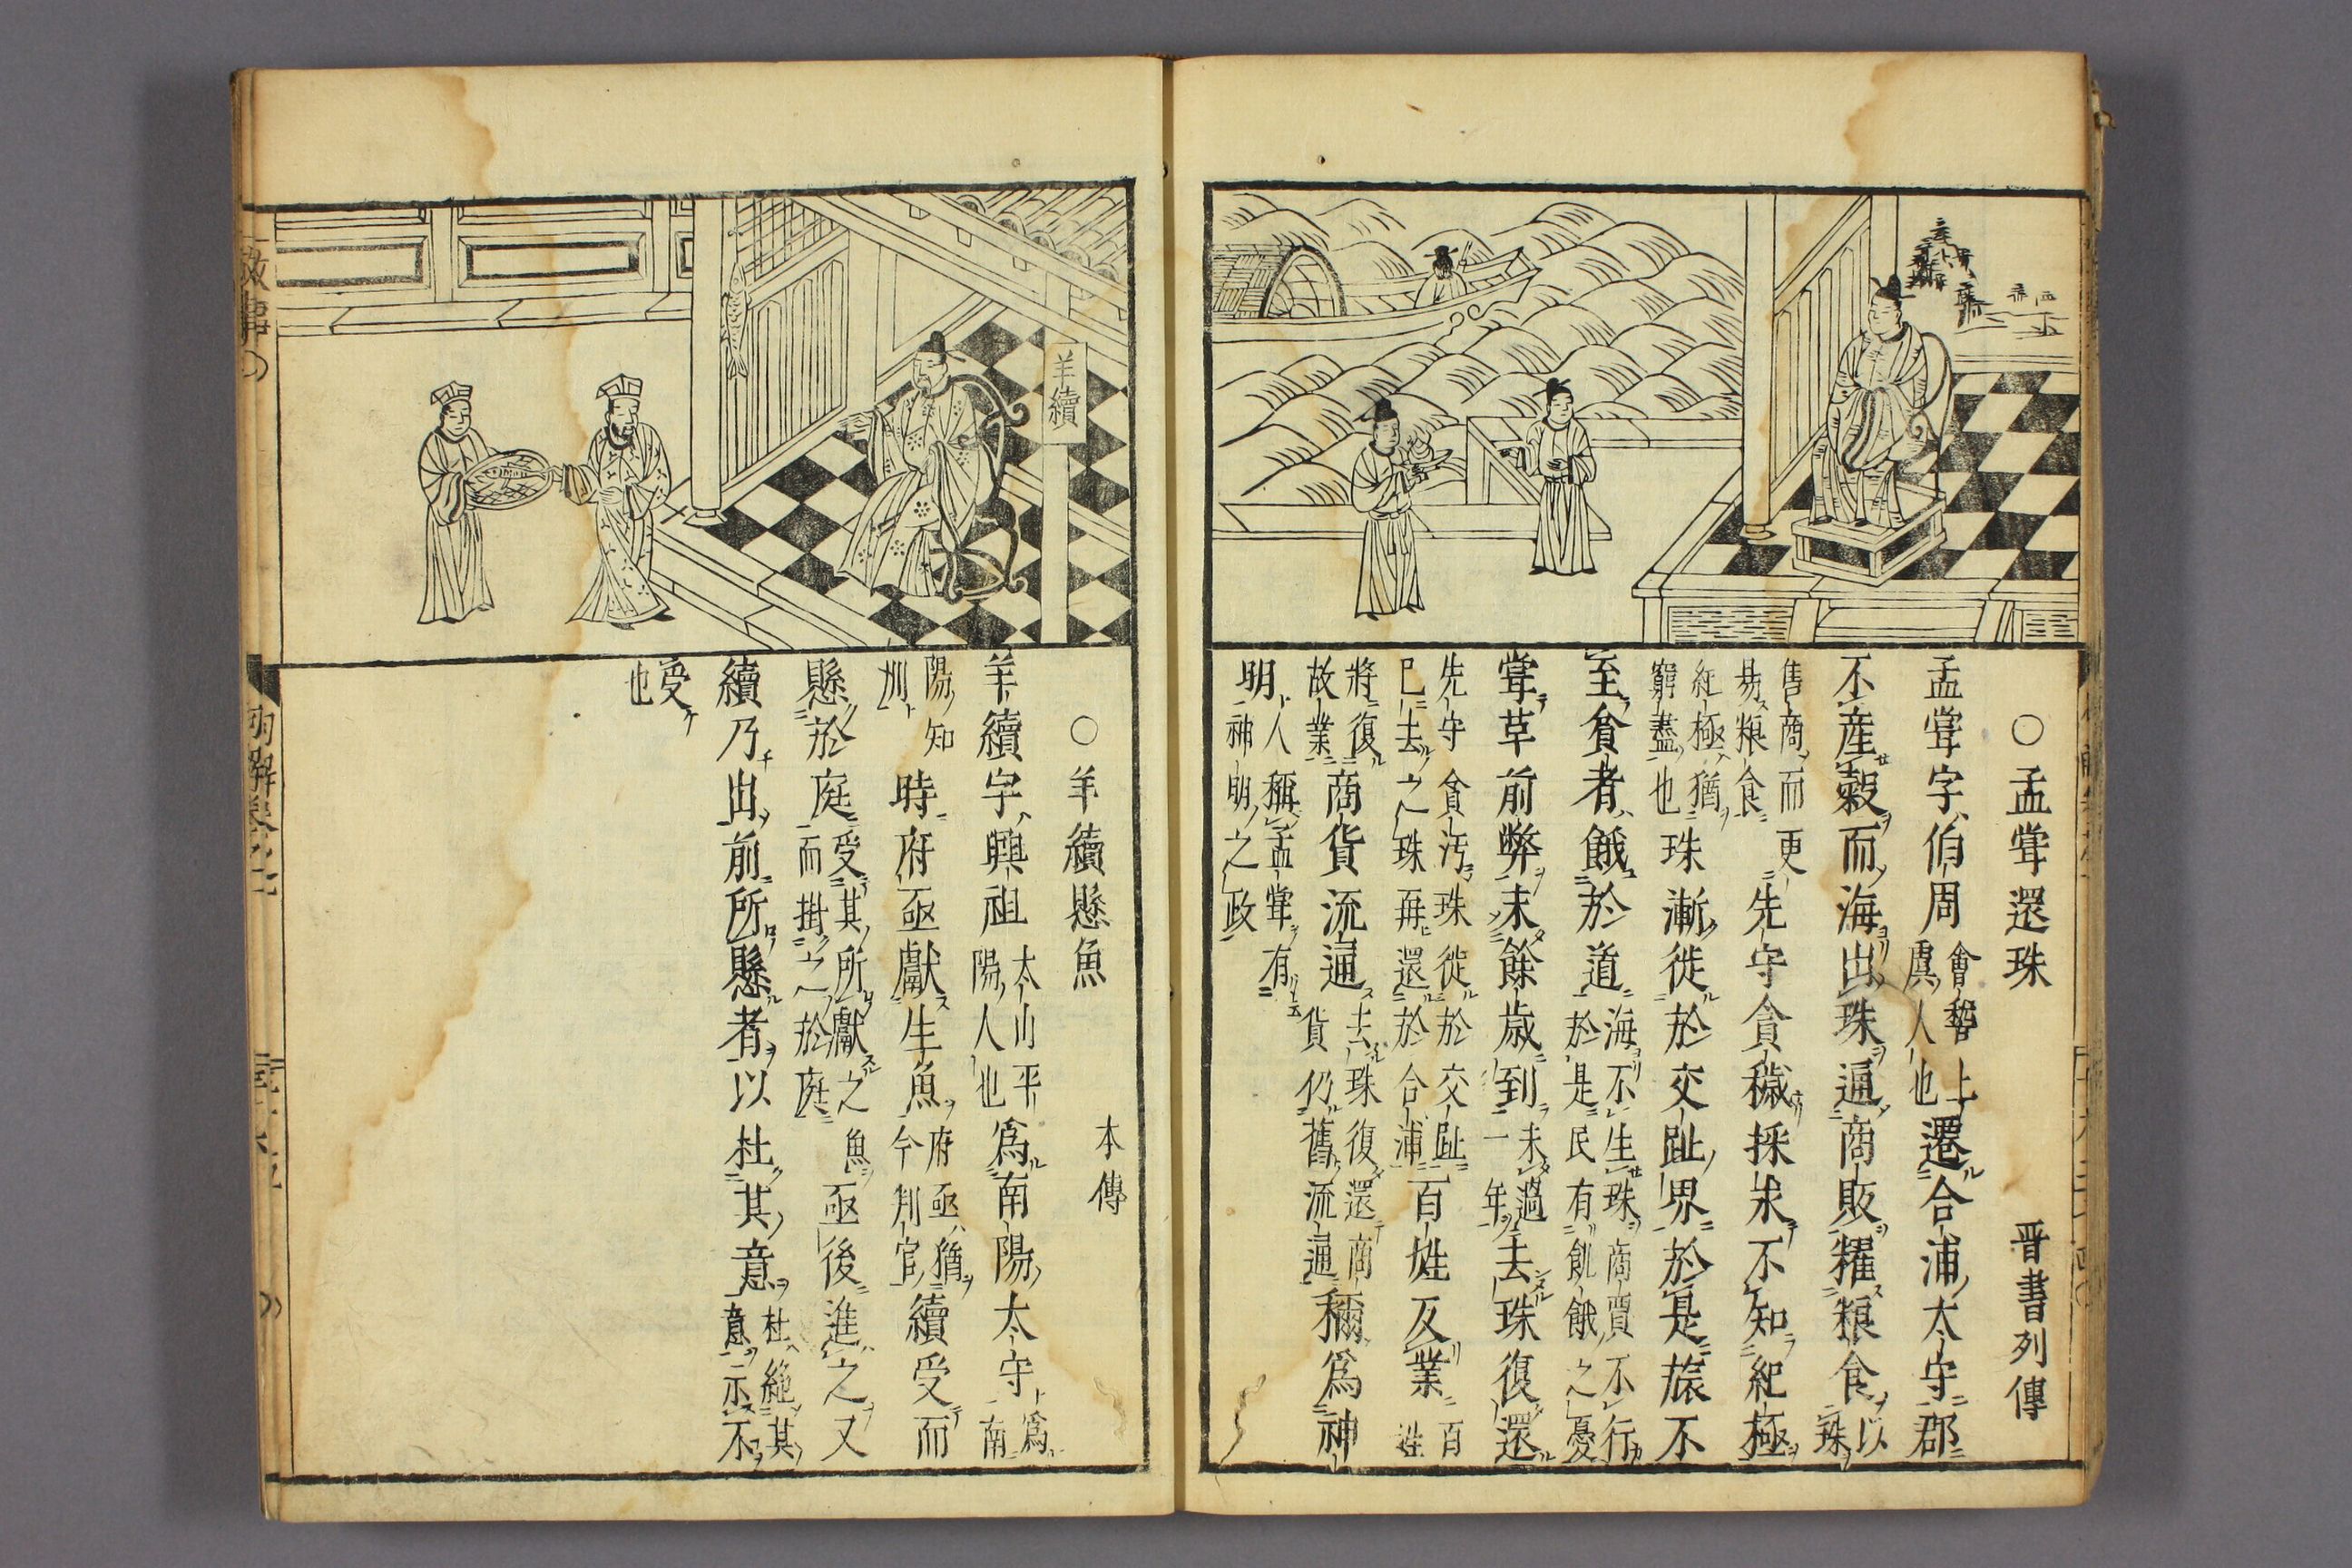 ○孟甞還珠　晋書列傳
孟甞字伯周會稽上虞人也遷合浦太守郡
不産穀而海出珠通商販糴粮食以珠
售商而更易粮食先守貪穢採求不知紀極
紀極猶窮盡也珠漸徙於交趾界於是旅不
至貧者餓於道海不生珠商賈不行於是民有飢餓之憂
甞草前弊未餘歳到未過一年去珠復還
先守貪汚珠徙於交趾已去之珠再還於合浦百姓反業百姓
將復故業商貨流通去珠復還商貨仍舊流通稱爲神
明人稱孟甞有神明之政
羊續
○羊續懸魚　本傳
羊續字興祖太山平陽人也爲南陽太守爲南
陽知州時府亟獻生魚府亟猶今判官續受而
懸於庭受其所獻之魚而掛之於庭亟後進之又
續乃出前所懸者以杜其意杜絶其意示不
受也